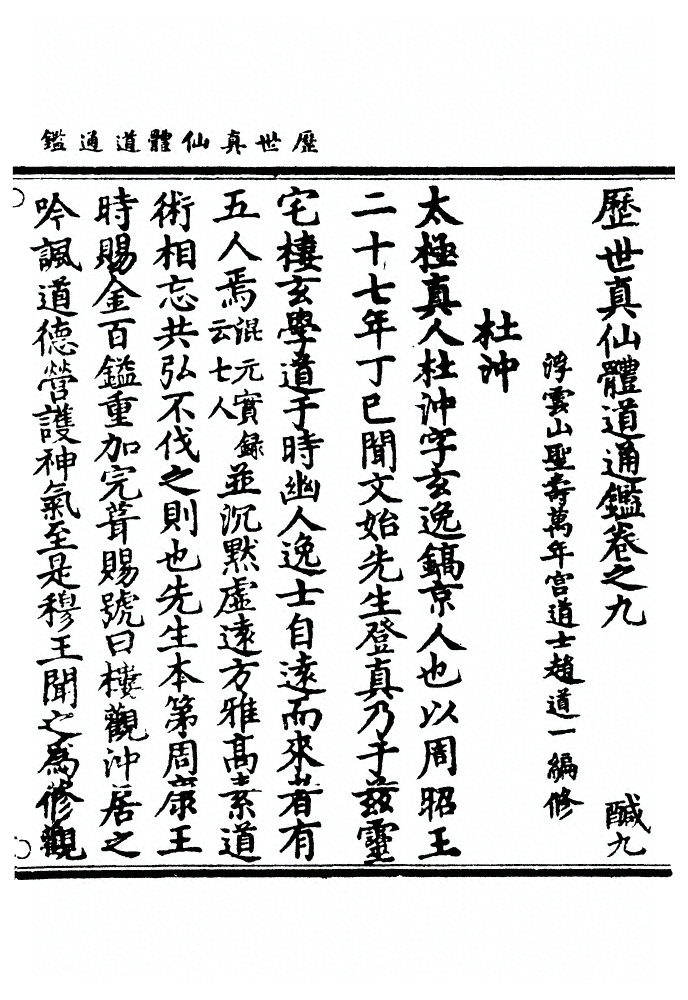 歷世真仙體道通鑑
歷世真仙體道通鑑卷之九
醎九
浮雲山聖壽萬年宫道士趙道一編修
杜沖
太極真人杜沖字玄逸鎬京人也以周昭王
二十七年丁巳聞文始先生登真乃于兹靈
宅棲玄學道于時幽人逸士自遠而來者有
五人焉混元實錄云七人並沉默虛遠方雅高素道
術相忘共弘不伐之則也先生本第周康王
時賜金百鎰重加完葺賜號曰樓觀沖居之
吟諷道德營護神氣至是穆王聞之為修觀